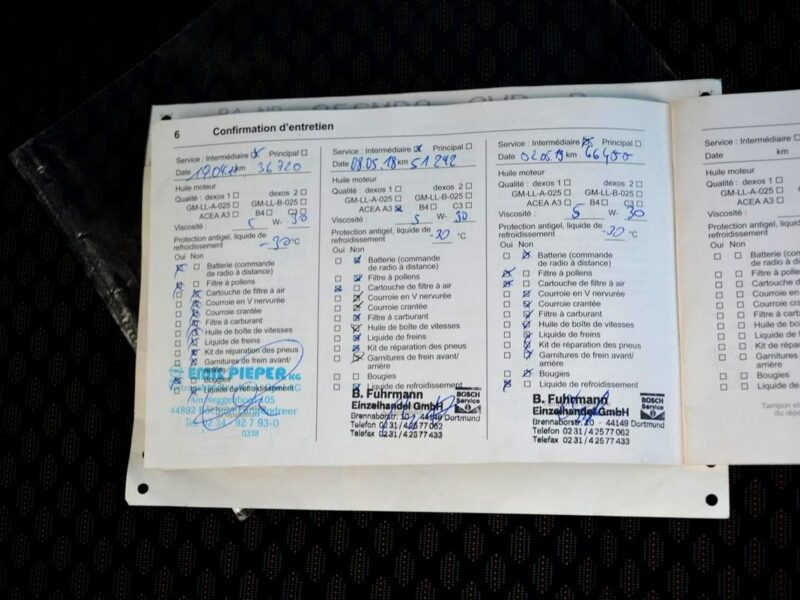 6 Confirmation d'entretien
Service : Intermédiaire Principal
Date km 36720
Huile moteur
Qualité : dexos 1 dexos 2
GM-LL-A-025 GM-LL-B-025
ACEA A3 B4 C3
Viscosité : 5 W- 30
Protection antigel, liquide de
refroidissement -30 °C
Oui Non
Batterie (commande
de radio à distance)
Filtre à pollens
Cartouche de filtre à air
Courroie en V nervurée
Courroie crantée
Filtre à carburant
Huile de boîte de vitesses
Liquide de freins
Kit de réparation des pneus
Garnitures de frein avant/
arrière
Bougies
Liquide de refroidissement
EMIL PIEPER KG
Am Neggenborn 105
44892 Bochum-Langendreer
Tel. 02 34 - 92 7 93-0
0338
Service : Intermédiaire Principal
Date 08.05.18 km 51292
Huile moteur
Qualité : dexos 1 dexos 2
GM-LL-A-025 GM-LL-B-025
ACEA A3 B4 C3
Viscosité : 5 W- 30
Protection antigel, liquide de
refroidissement -30 °C
Oui Non
Batterie (commande
de radio à distance)
Filtre à pollens
Cartouche de filtre à air
Courroie en V nervurée
Courroie crantée
Filtre à carburant
Huile de boîte de vitesses
Liquide de freins
Kit de réparation des pneus
Garnitures de frein avant/
arrière
Bougies
Liquide de refroidissement
B. Fuhrmann
Einzelhandel GmbH
BOSCH
Service
Brennaborstr. 10 · 44149 Dortmund
Telefon 02 31 / 4 25 77 062
Telefax 02 31 / 4 25 77 433
Service : Intermédiaire Principal
Date 02.05.19 km 66400
Huile moteur
Qualité : dexos 1 dexos 2
GM-LL-A-025 GM-LL-B-025
ACEA A3 B4 C3
Viscosité : 5 W- 30
Protection antigel, liquide de
refroidissement -30 °C
Oui Non
Batterie (commande
de radio à distance)
Filtre à pollens
Cartouche de filtre à air
Courroie en V nervurée
Courroie crantée
Filtre à carburant
Huile de boîte de vitesses
Liquide de freins
Kit de réparation des pneus
Garnitures de frein avant/
arrière
Bougies
Liquide de refroidissement
B. Fuhrmann
Einzelhandel GmbH
BOSCH
Service
Brennaborstr. 10 · 44149 Dortmund
Telefon 02 31 / 4 25 77 062
Telefax 02 31 / 4 25 77 433
Service : Intermédiaire
Date km
Huile moteur
Qualité : dexos 1
GM-LL-A-025
ACEA A3
Viscosité :
Protection antigel, liquide
refroidissement
Oui Non
Batterie (com
de radio à
Filtre à
Cartouche
Courroie
Courroie
Filtre à
Huile de
Liquide
Kit de
Garnitures
arrière
Bougies
Liquide
Tampon et
du répa